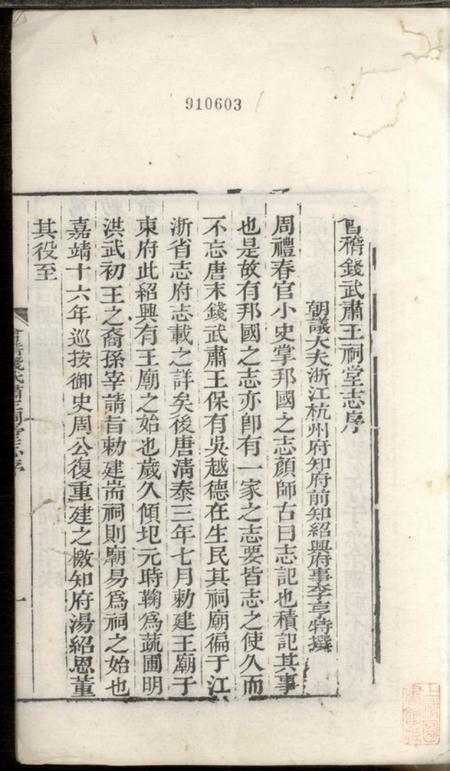 910603
會稽錢武肅王祠堂志序
朝議大夫浙江杭州府知府前知紹興府事李亨特撰
周禮春官小史掌邦國之志顏師古曰志記也積記其事
也是故有邦國之志亦卽有一家之志要皆志之使久而
不忘唐末錢武肅王保有吳越德在生民其祠廟徧于江
浙省志府志載之詳矣後唐清泰三年七月勅建王廟于
東府此紹興有王廟之始也歲久傾圯元時鞠爲蔬圃明
洪武初王之裔孫宰請旨勅建耑祠則廟易爲祠之始也
嘉靖十六年巡按御史周公復重建之檄知府湯紹恩董
其役至
會稽錢武肅王祠堂志序
一